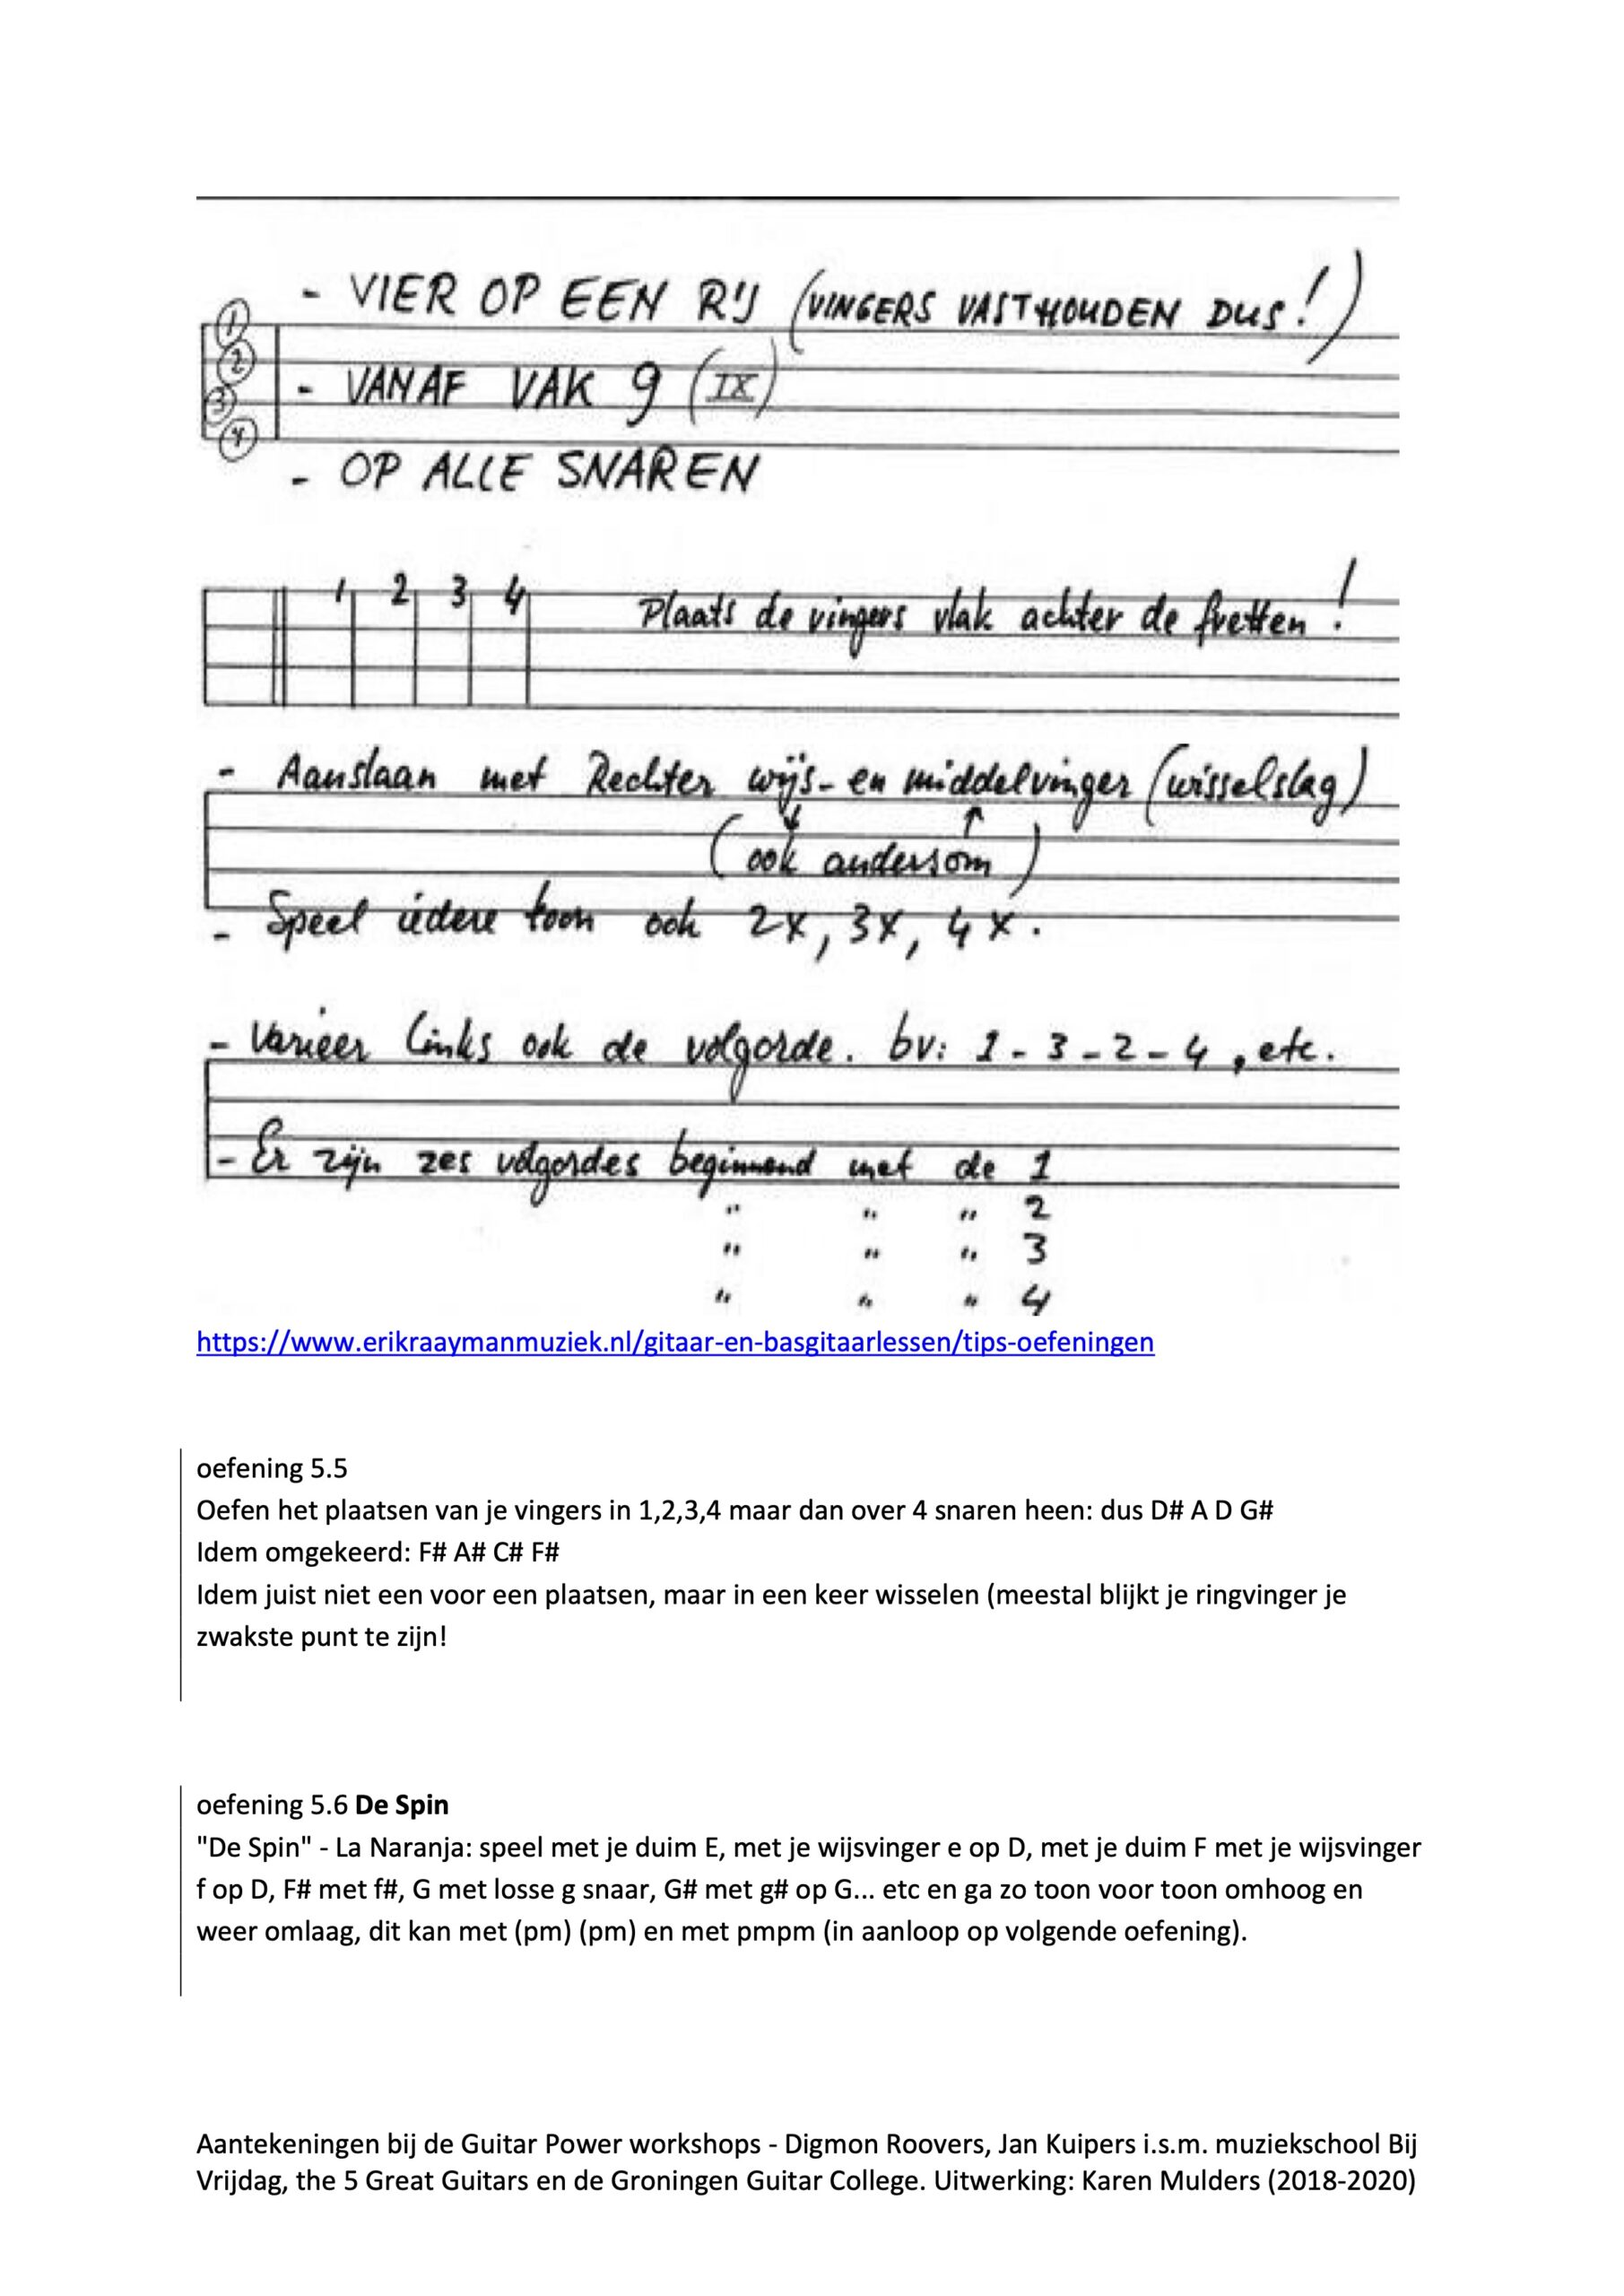 - VIER OP EEN RIJ (VINGERS VASTHOUDEN DUS!)
1
2
- VANAF VAK 9 (IX)
3
4
- OP ALLE SNAREN
1 2 3 4
Plaats de vingers vlak achter de fretten!
- Aanslaan met Rechter wijs- en middelvinger (wisselslag)
(ook andersom)
- Speel iedere toon ook 2x, 3x, 4x.
- Varieer links ook de volgorde. bv: 1-3-2-4, etc.
- Er zijn zes volgordes beginnend met de 1
" " " 2
" " " 3
" " " 4
https://www.erikraaymanmuziek.nl/gitaar-en-basgitaarlessen/tips-oefeningen
oefening 5.5
Oefen het plaatsen van je vingers in 1,2,3,4 maar dan over 4 snaren heen: dus D# A D G#
Idem omgekeerd: F# A# C# F#
Idem juist niet een voor een plaatsen, maar in een keer wisselen (meestal blijkt je ringvinger je
zwakste punt te zijn!
oefening 5.6 De Spin
"De Spin" - La Naranja: speel met je duim E, met je wijsvinger e op D, met je duim F met je wijsvinger
f op D, F# met f#, G met losse g snaar, G# met g# op G... etc en ga zo toon voor toon omhoog en
weer omlaag, dit kan met (pm) (pm) en met pmpm (in aanloop op volgende oefening).
Aantekeningen bij de Guitar Power workshops - Digmon Roovers, Jan Kuipers i.s.m. muziekschool Bij
Vrijdag, the 5 Great Guitars en de Groningen Guitar College. Uitwerking: Karen Mulders (2018-2020)